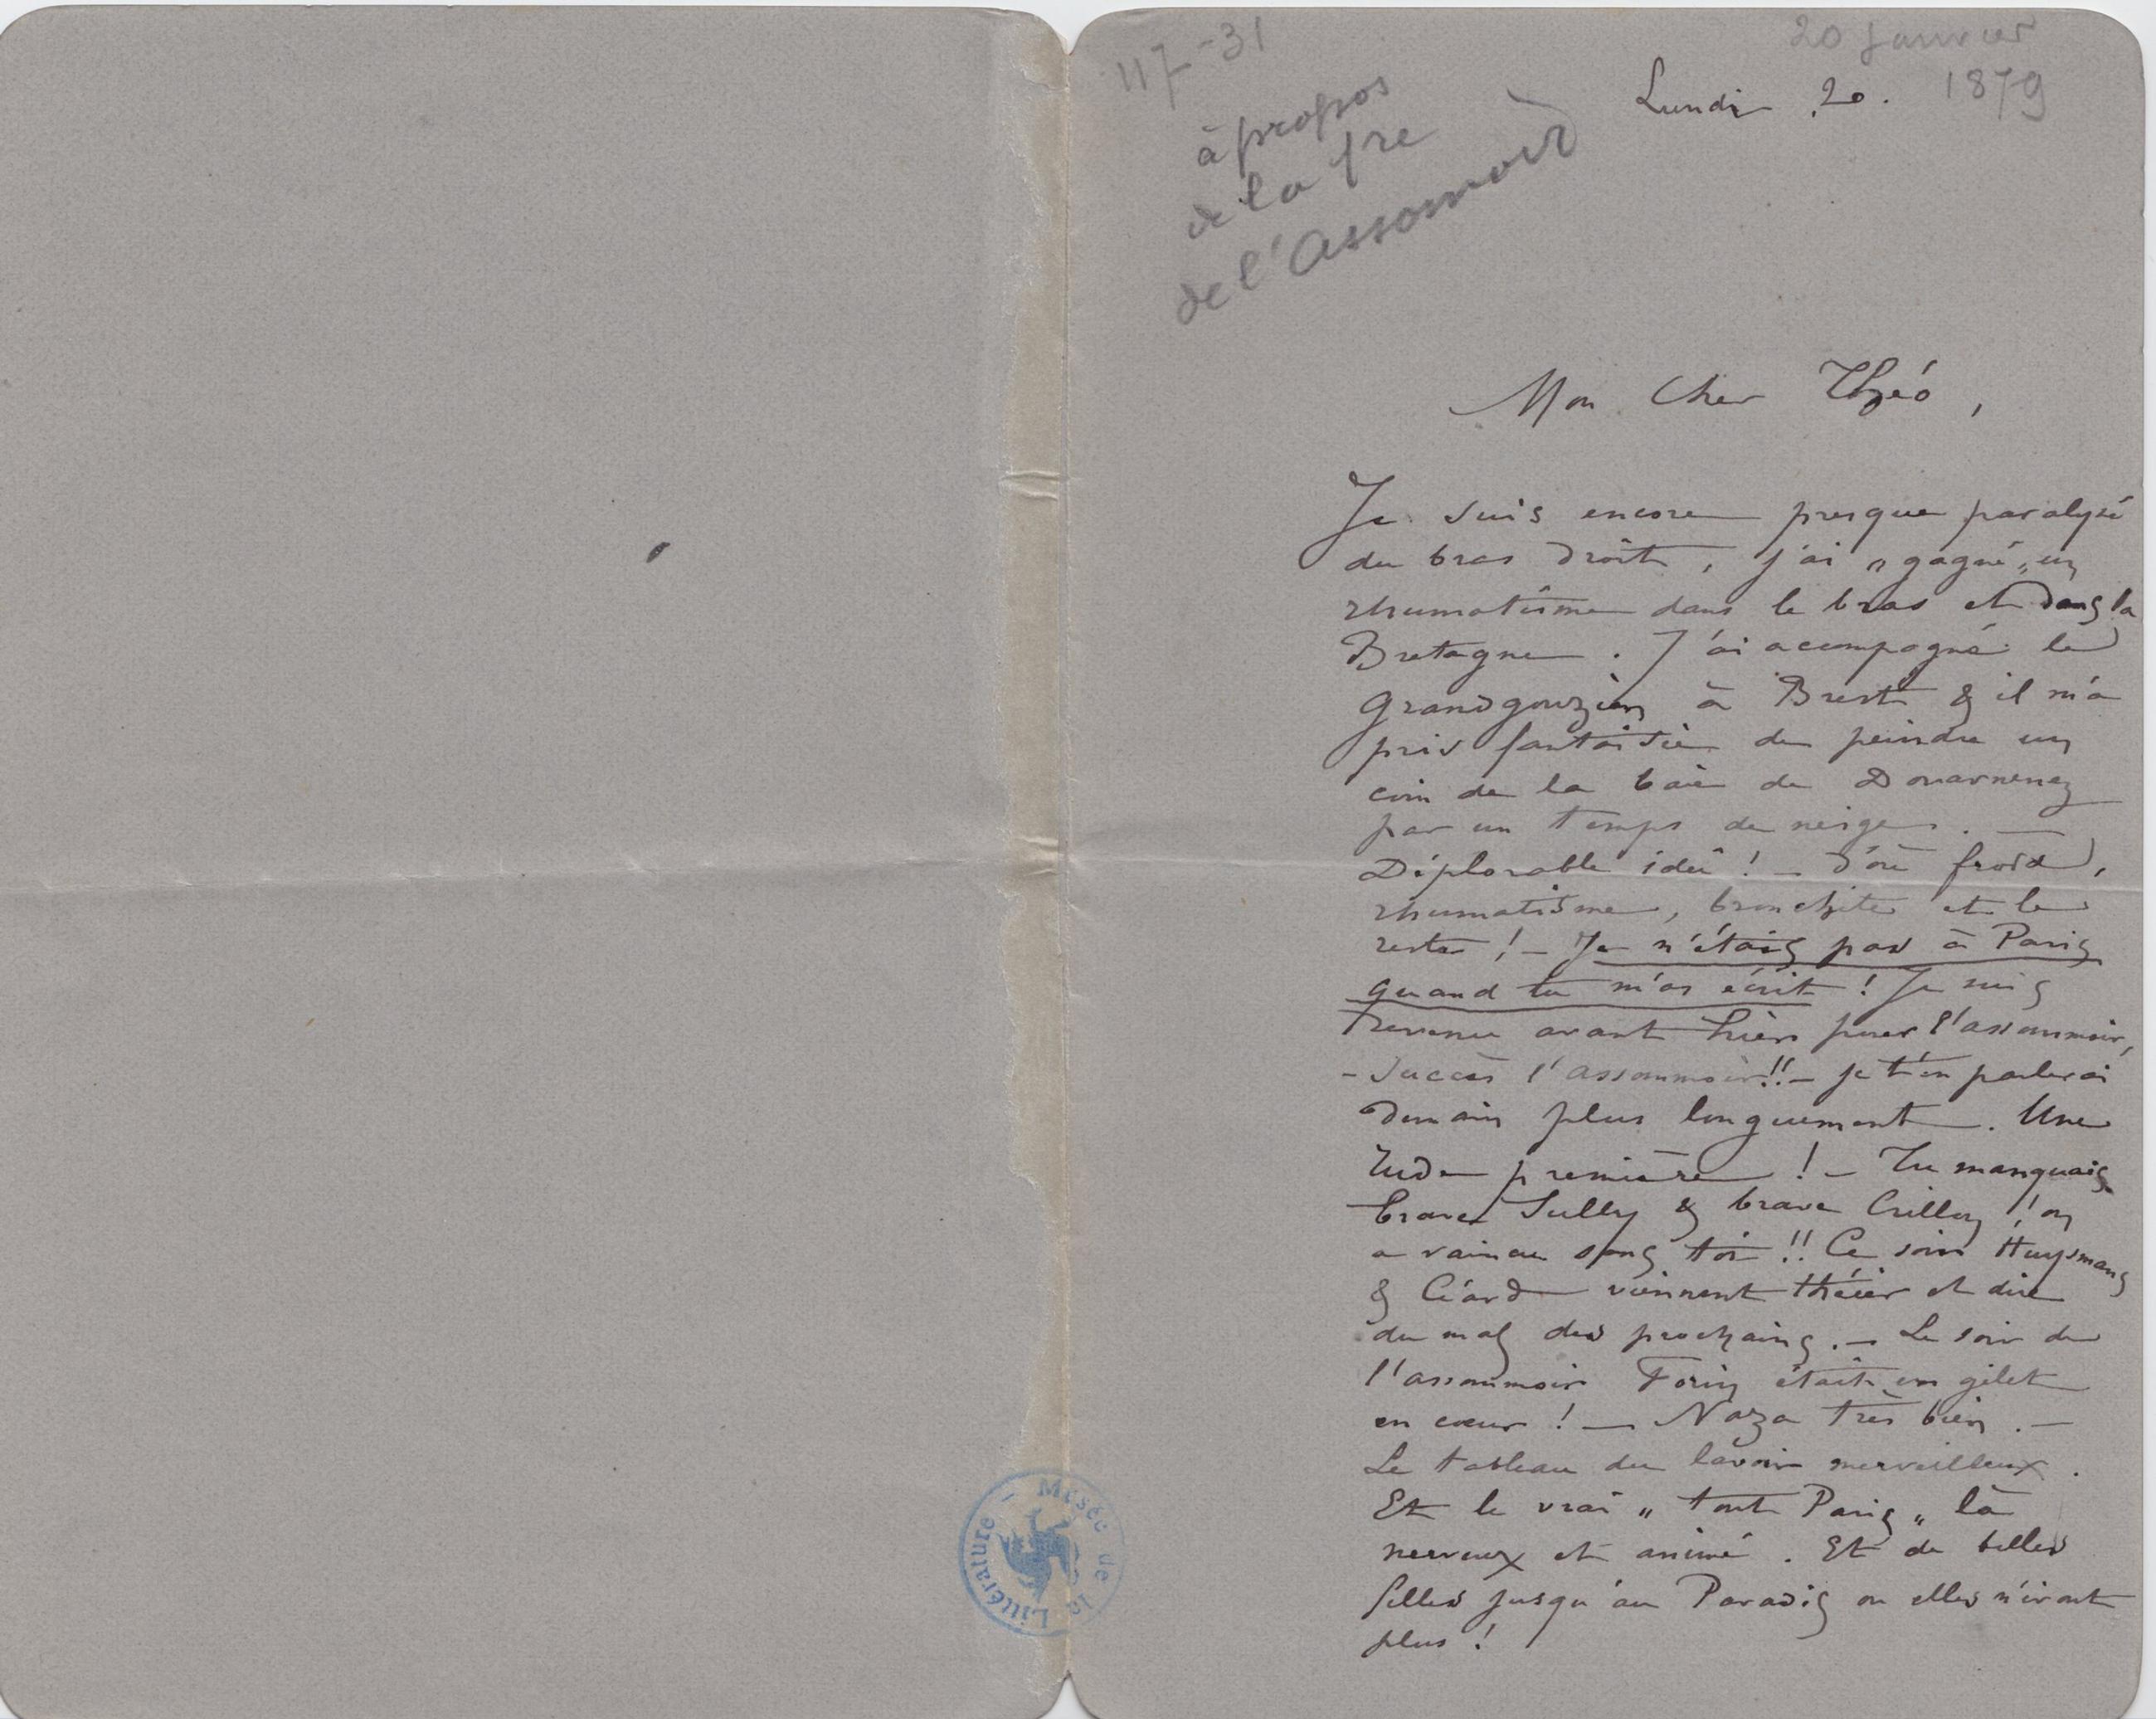 117-31
20 Janvier
1879
à propos
de la 1re
de l'Assomoir
Lundi 20.
Mon Cher Théo,
Je suis encore presque paralysé
du bras droit, j'ai „gagné„ un
rhumatisme dans le bras et dans la
Bretagne. J'ai accompagné le
Grandgouzien à Brest & il m'a
pris fantaisie de peindre un
coin de la baie de Douarnenez
par un temps de neige. —
Déplorable idée ! – d'où froid,
rhumatisme, bronchite et le
reste ! – Je n'étais pas à Paris
quand tu m'as écrit ! Je suis
revenu avant hier pour l'assommoir,
– Succès l'assommoir !! – je t'en parlerai
demain plus longuement. Une
rude première ! – Tu manquais
brave Sully & brave Crillon ! on
a vaincu sans toi !! Ce soir Huysmans
& Céard viennent théier et dire
du mal des prochains. – Le soir de
l'assommoir Forin était en gilet
en cœur ! — Naza très bien. —
Le tableau du lavoir merveilleux.
Et le vrai „ tout Paris „ là
nerveux et animé. Et de belles
filles jusqu'au Paradis où elles n'iront
plus !
Musée de la Littérature –